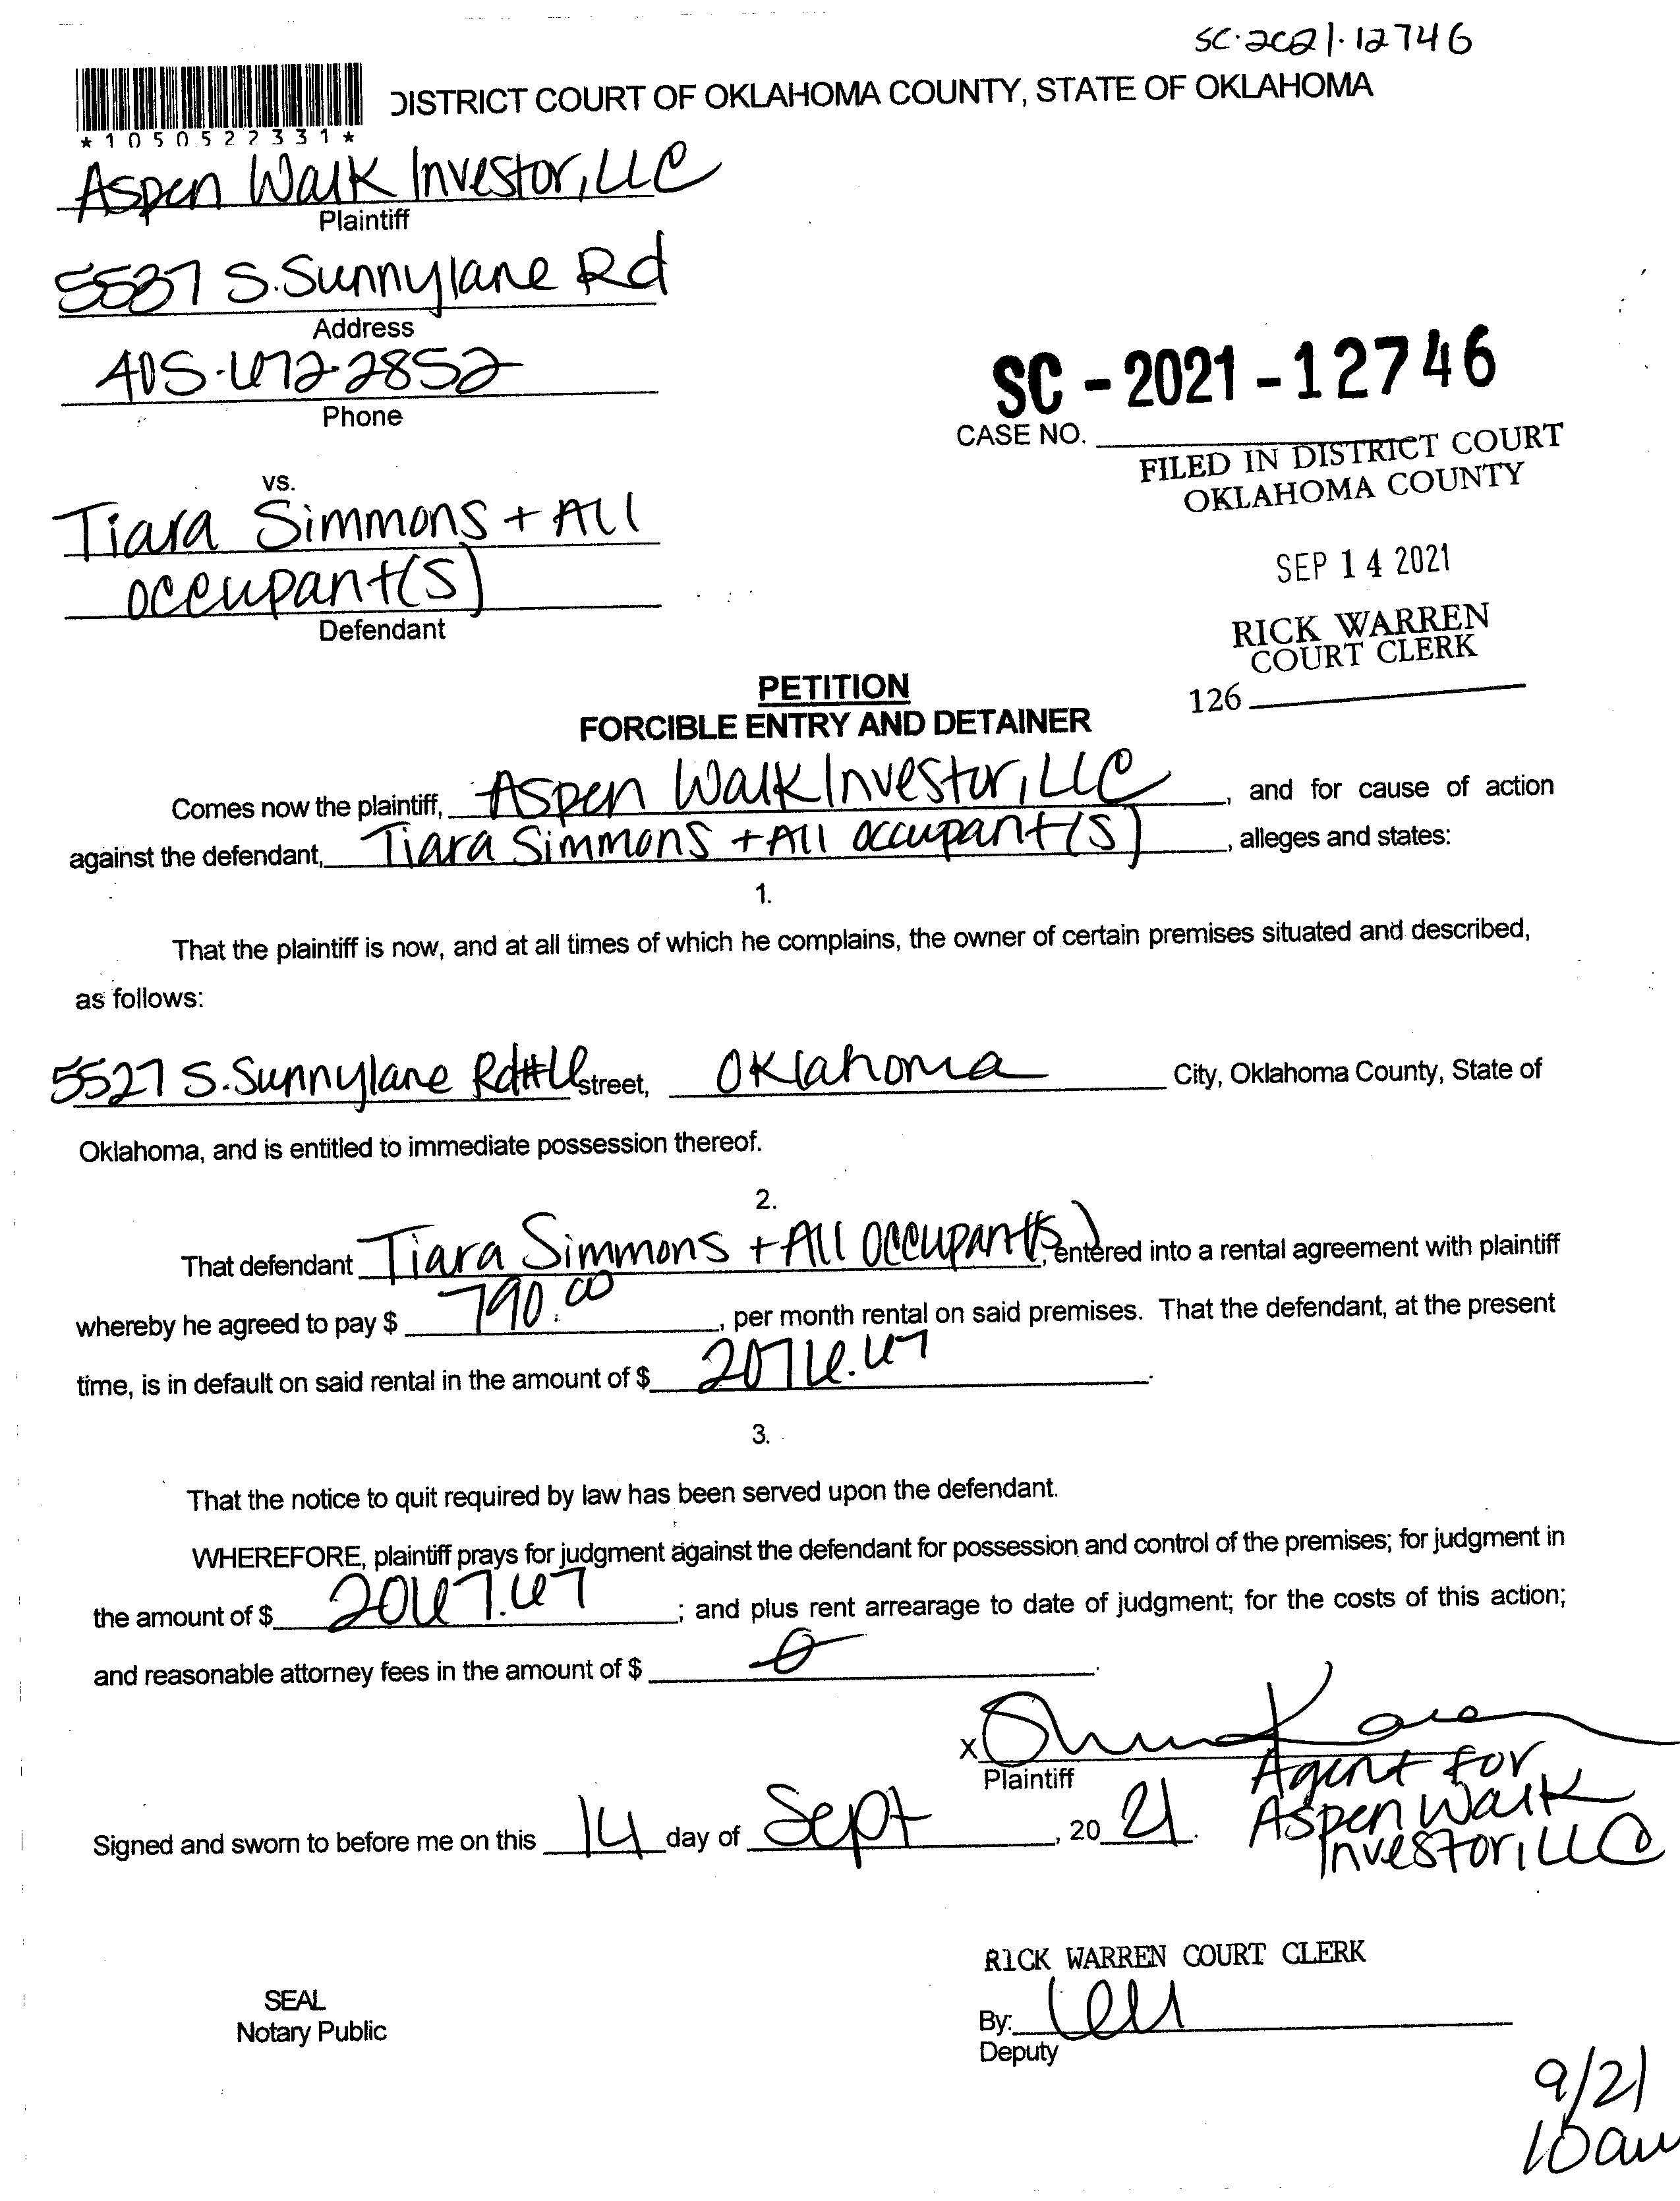 SC·2021·12746
DISTRICT COURT OF OKLAHOMA COUNTY, STATE OF OKLAHOMA
*1050522331*
Aspen Walk Investor, LLC
Plaintiff
5537 S. Sunnylane Rd
Address
405-672-2852
Phone
SC-2021-12746
CASE NO.
FILED IN DISTRICT COURT
OKLAHOMA COUNTY
vs.
Tiara Simmons + All
occupant(s)
Defendant
SEP 14 2021
RICK WARREN
COURT CLERK
126
PETITION
FORCIBLE ENTRY AND DETAINER
Comes now the plaintiff, Aspen Walk Investor, LLC, and for cause of action
against the defendant, Tiara Simmons + All occupant(s), alleges and states:
1.
That the plaintiff is now, and at all times of which he complains, the owner of certain premises situated and described,
as follows:
5527 S. Sunnylane Rd #U street, Oklahoma City, Oklahoma County, State of
Oklahoma, and is entitled to immediate possession thereof.
2.
That defendant Tiara Simmons + All occupant(s), entered into a rental agreement with plaintiff
whereby he agreed to pay $ 790.00, per month rental on said premises. That the defendant, at the present
time, is in default on said rental in the amount of $ 2076.67.
3.
That the notice to quit required by law has been served upon the defendant.
WHEREFORE, plaintiff prays for judgment against the defendant for possession and control of the premises; for judgment in
the amount of $ 2067.67; and plus rent arrearage to date of judgment; for the costs of this action;
and reasonable attorney fees in the amount of $ 0.
X
Plaintiff
Agent for
Aspen Walk
Investor, LLC
Signed and sworn to before me on this 14 day of Sept, 2021.
RICK WARREN COURT CLERK
SEAL
Notary Public
By:
Deputy
9/21
10am